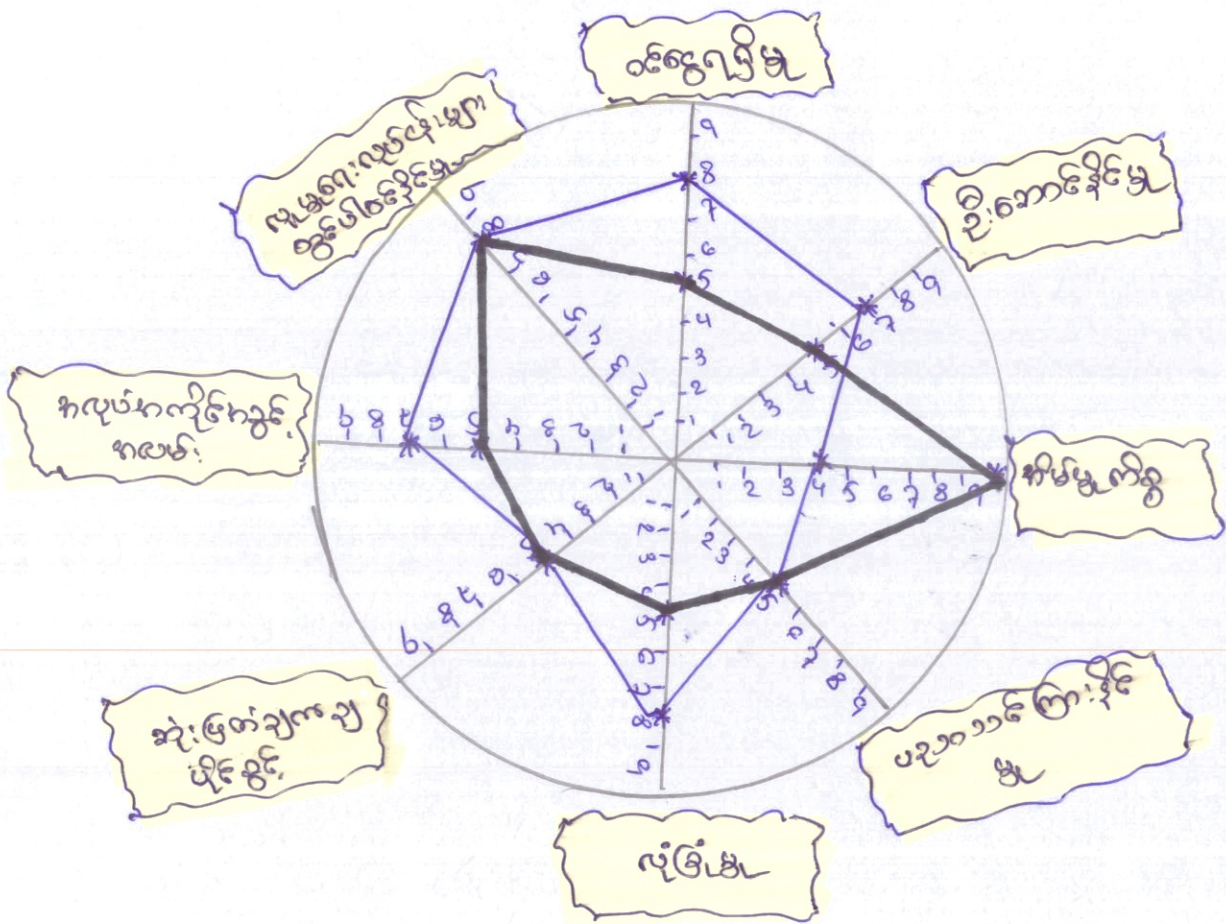 ဝင်ငွေရရှိမှု
ဦးဆောင်နိုင်မှု
အိမ်မှုကိစ္စ
ပညာသင်ကြားနိုင်
မှု
လုံခြုံမှု
ဆုံးဖြတ်ချက်ချ
ပိုင်ခွင့်
အလုပ်အကိုင်အခွင့်
အလမ်း
လူမှုရေးလုပ်ငန်းများ
တွင်ပါဝင်နိုင်မှု
9
8
7
6
5
4
3
2
1
1
2
3
4
5
6
7
8
9
1
2
3
4
5
6
7
8
9
1
2
3
4
5
6
7
8
9
1
2
3
4
5
6
7
8
9
1
2
3
4
5
6
7
8
9
1
2
3
4
5
6
7
8
9
1
2
3
4
5
6
7
8
9